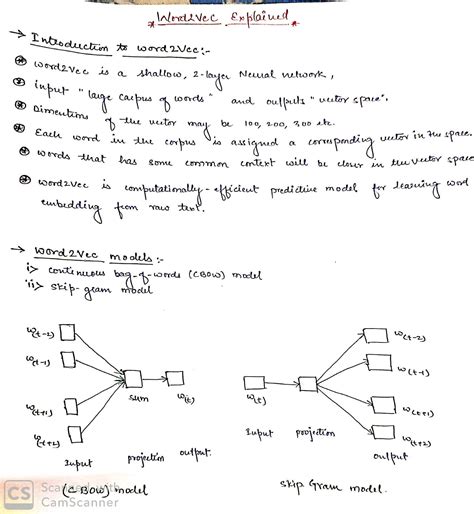 * Word2Vec Explained *
→ Introduction to word2vec:-
* word2vec is a shallow, 2-layer Neural network,
* input "large corpus of words" and outputs "vector space".
* Dimentions of the vector may be 100, 200, 300 etc.
* Each word in the corpus is assigned a corresponding vector in the space.
* words that has some common context will be closer in the vector space
* word2vec is computationally-efficient predictive model for learning word
embedding from raw text.
→ Word2Vec models:-
i> continuous bag-of-words (CBOW) model
ii> skip-gram model
w(t-2)
w(t-1)
w(t+1)
w(t+2)
sum
w(t)
Input projection output
(CBOW) model
w(t)
w(t-2)
w(t-1)
w(t+1)
w(t+2)
Input projection output
skip Gram model.
CS Scanned with
CamScanner